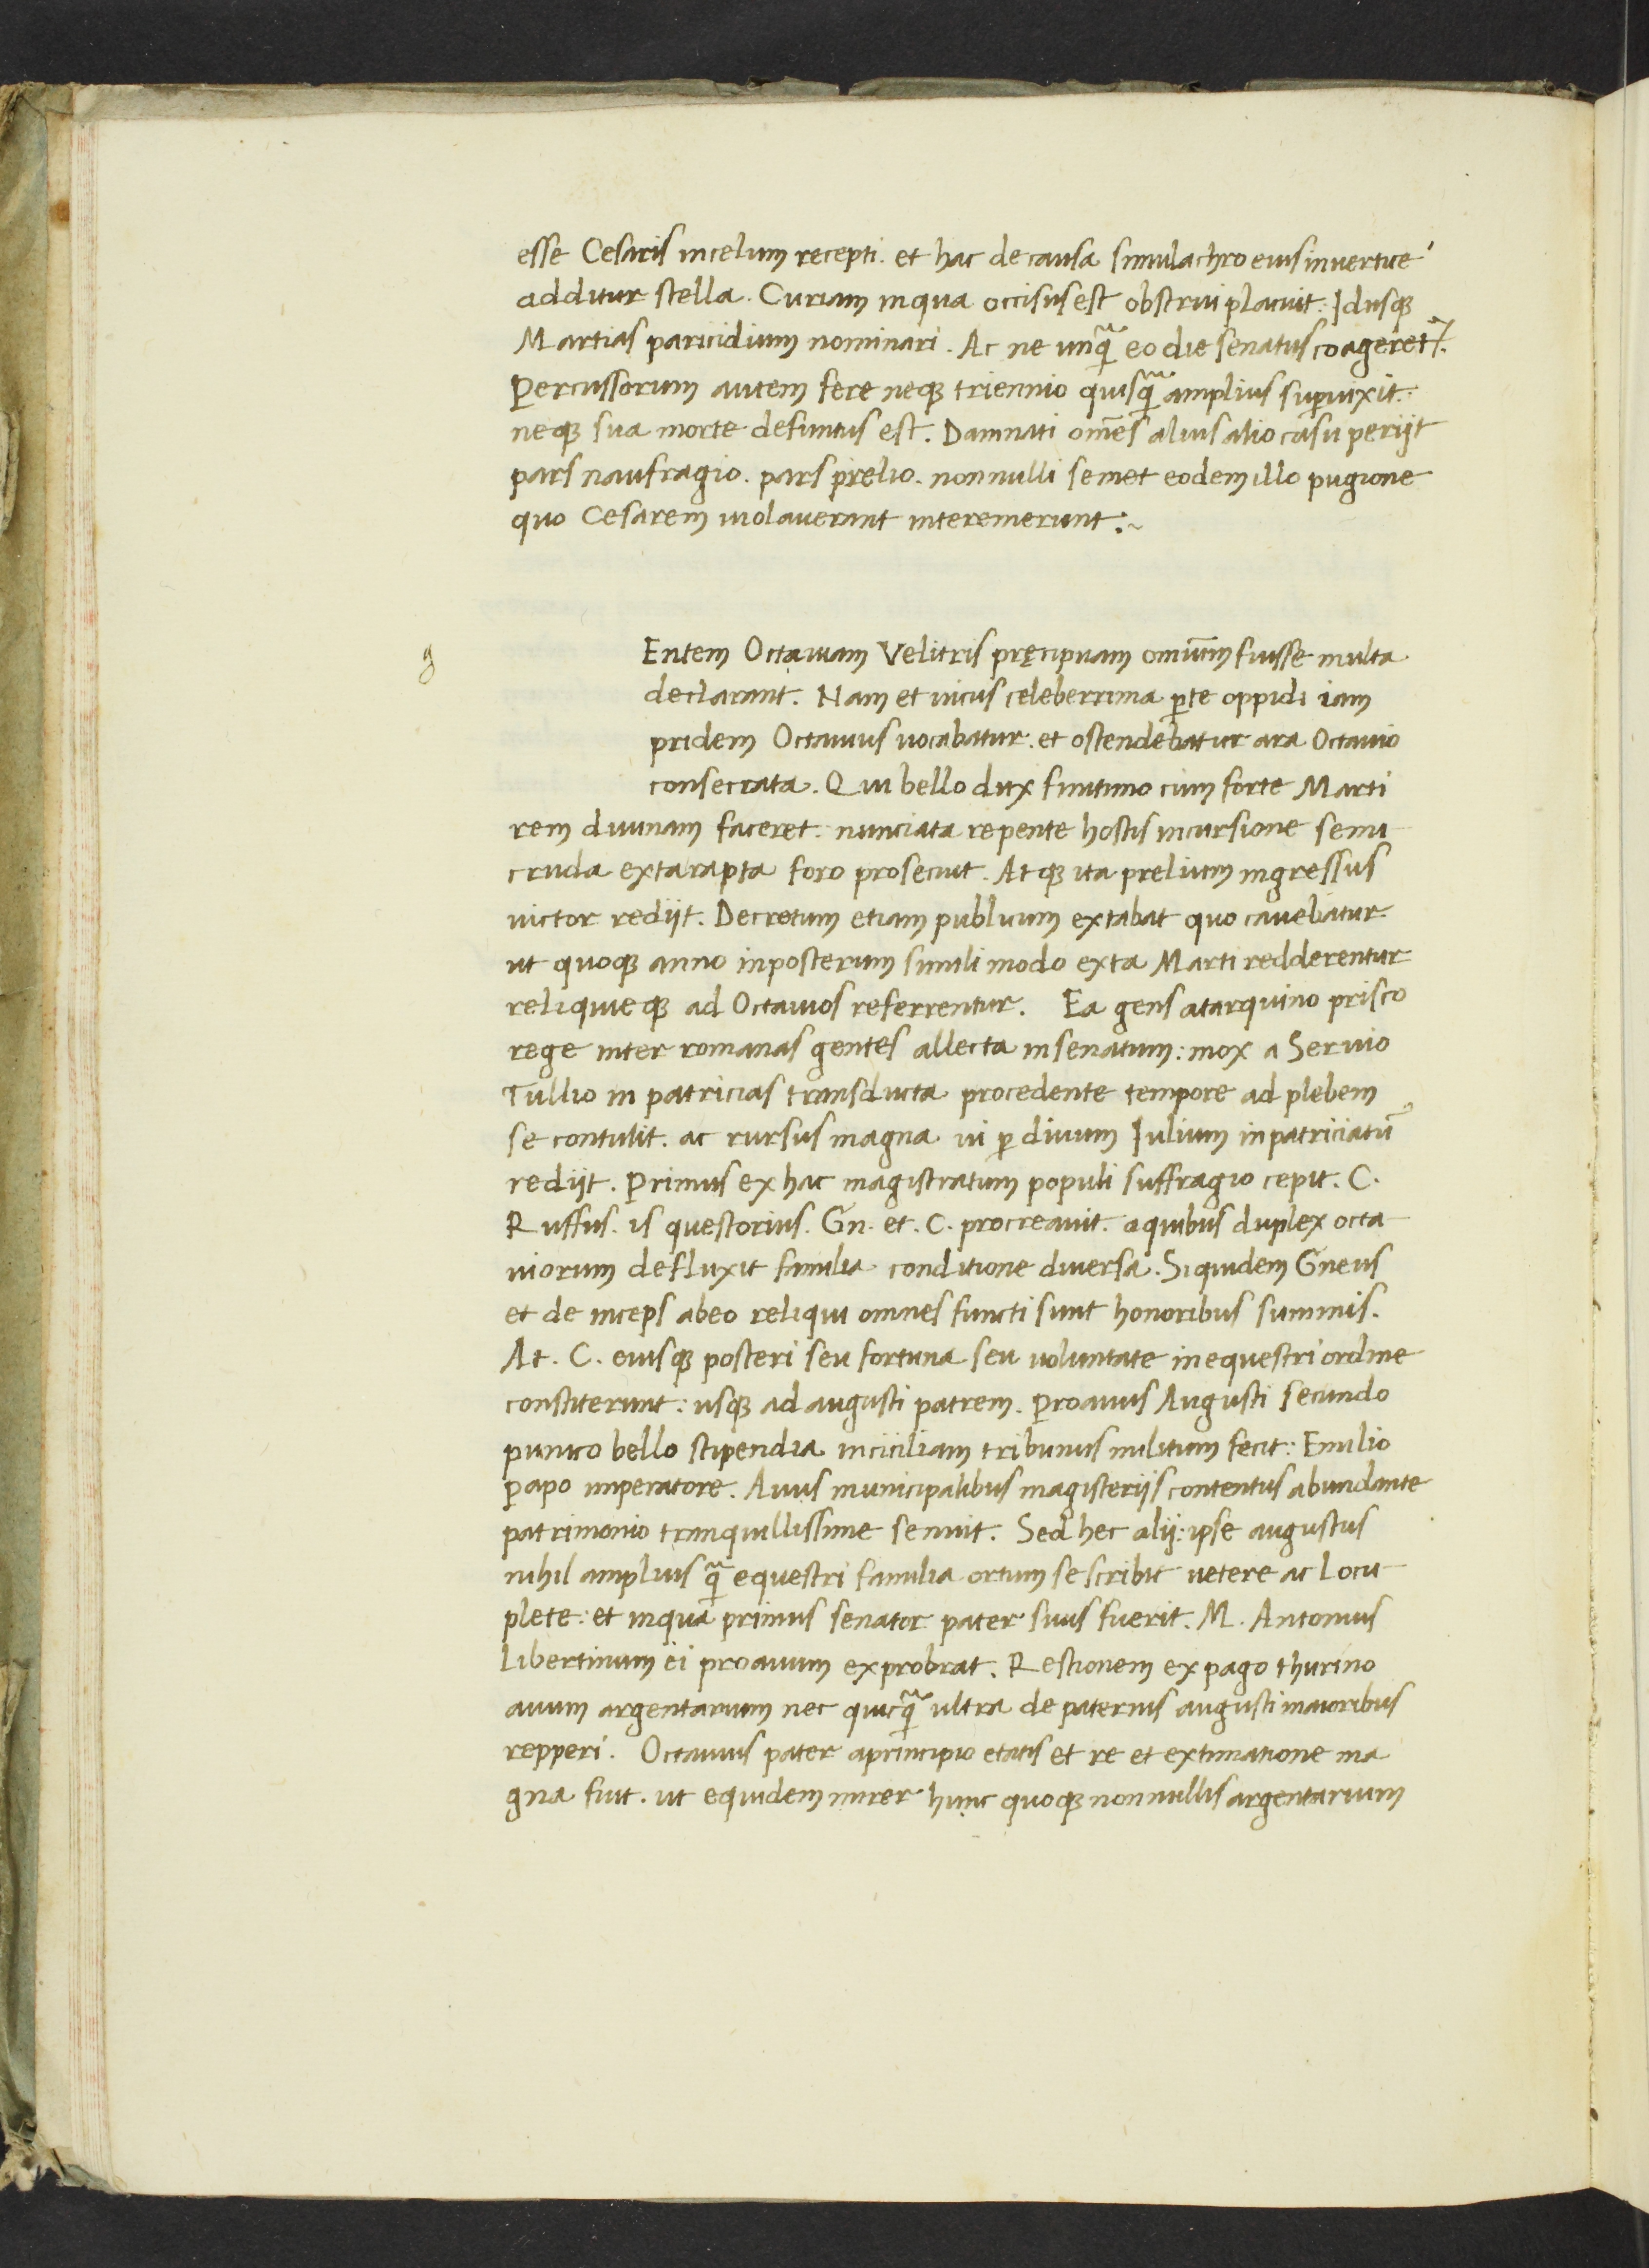 esse Cesaris incelum recepti. et hac decausa simulachro eius inuertice
additur stella. Curiam inqua occisus est obstrui placuit: Idusqꝫ
Martias paricidium nominari. Ac ne unqᷓ eo die senatus coageret͛.
Percussorum autem fere neqꝫ triennio quisqᷓ amplius suꝑuixit:
neqꝫ sua morte defuntus est. Damnati om̄es alius alio casu perijt
pars naufragio. pars prelio. nonnulli semet eodem illo pugione
quo Cesarem uiolauerant interemerunt:~
g
Entem Octauiam Velitris pręcipuam omnium fuisse multa
declarant. Nam et uicus celeberrima ꝑte oppidi iam
pridem Octauius uocabatur. et ostendebatur ara Octauio
consecrata. Qui bello dux finitimo cum forte Marti
rem diuinam faceret: nunciata repente hostis incursione semi
cruda exta rapta foro prosecuit. Atqꝫ ita prelium ingressus
uictor redijt. Decretum etiam publicum extabat quo cauebatur
ut quoqꝫ anno inposterum simili modo exta Marti redderentur
reliquieqꝫ ad Octauios referrentur. Ea gens atarquino prisco
rege inter romanas gentes allecta insenatum: mox a Seruio
Tullio in patricias transducta procedente tempore ad plebem
se contulit. ac rursus magna ui ꝑ diuum Iulium inpatriciatū
redijt. Primus ex hac magistratum populi suffragio cepit. C.
Ruffus. is questorius. Gn. et. C. procreauit. aquibus duplex octa
uiorum defluxit familia conditione diuersa. Siquidem Gneus
et de inceps abeo reliqui omnes functi sunt honoribus summis.
At. C. eiusqꝫ posteri seu fortuna seu uoluntate inequestri ordine
constiterunt: usqꝫ ad augusti patrem. Proauus Augusti secundo
punico bello stipendia inciciliam tribunus militum fecit: Emilio
papo imperatore. Auus municipalibus magisterijs contentus abundante
patrimonio tranquillissime senuit. Sed hec alij: ipse augustus
nihil amplius qᷓ equestri familia ortum se scribit uetere ac locu
plete: et inqua primus senator pater suus fuerit. M. Antonius
libertinum ei proauum exprobrat. Restionem expago thurino
auum argentarium nec quicqᷓ ultra de paternis augusti maioribus
repperi. Octauius pater aprincipio etatis et re et extimatione ma
gna fuit. ut equidem mirer hunc quoqꝫ nonnullis argentarium